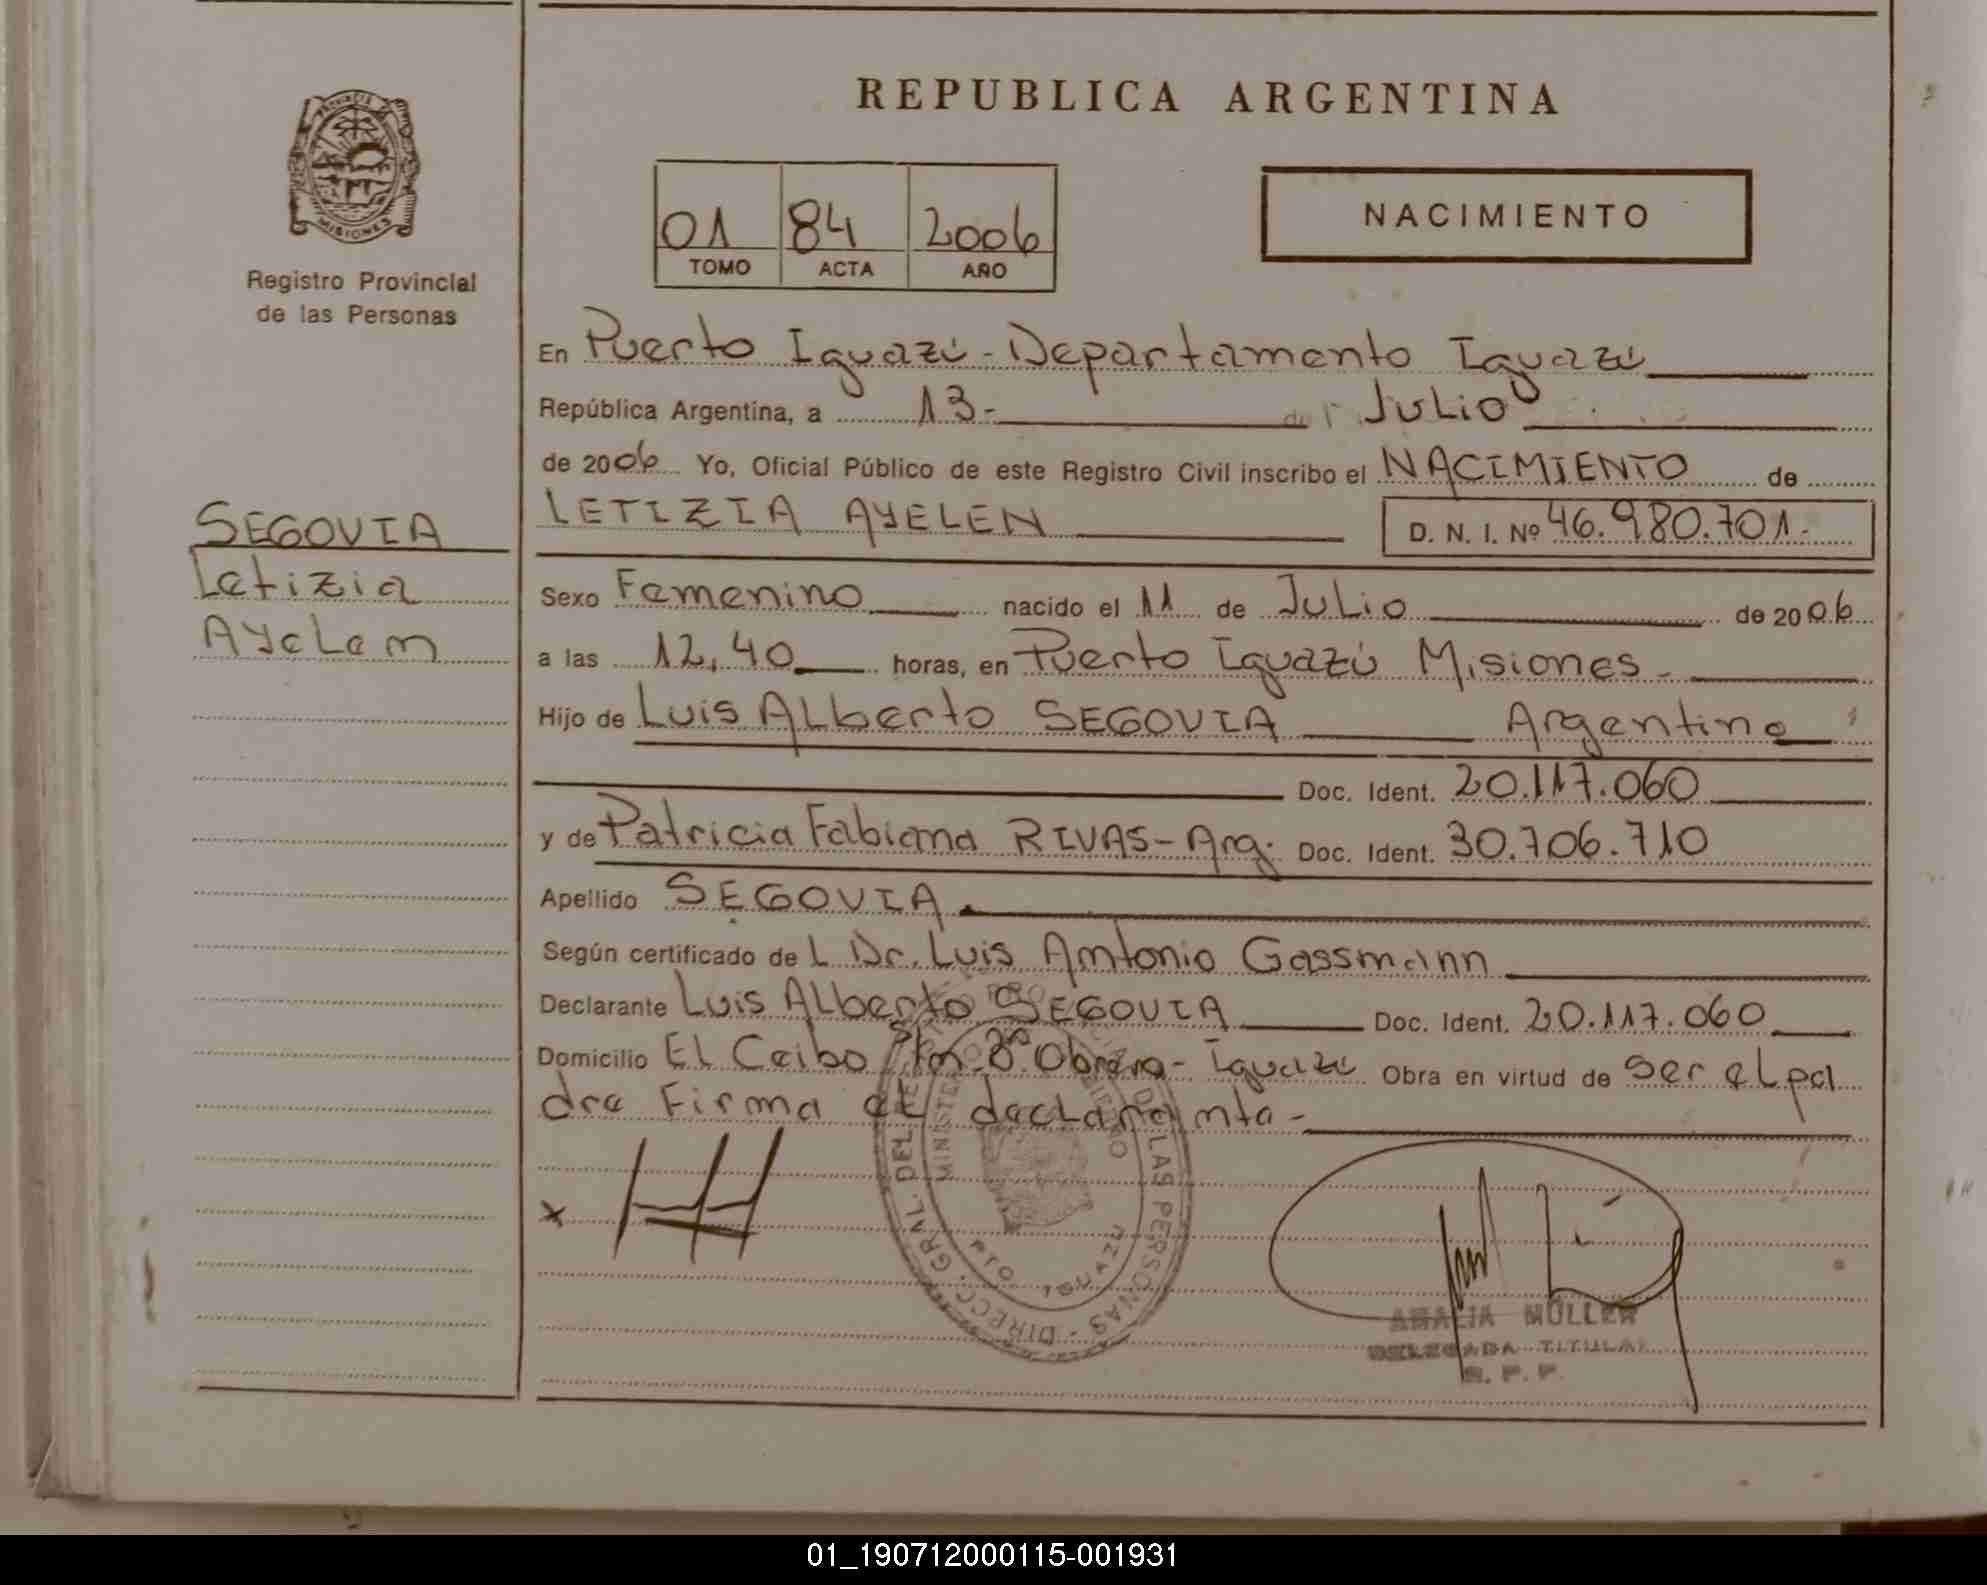 REPUBLICA ARGENTINA
PROVINCIA
MISIONES
Registro Provincial
de las Personas
01 84 2006
TOMO ACTA AÑO
NACIMIENTO
En Puerto Iguazú - Departamento Iguazú
República Argentina, a 13- de Julio
de 2006 Yo, Oficial Público de este Registro Civil inscribo el NACIMIENTO de
LETIZIA AYELEN D. N. I. Nº 46.980.701.-
SEGOVIA
Letizia
Ayelen
Sexo Femenino nacido el 11 de Julio de 2006
a las 12,40 horas, en Puerto Iguazú Misiones-
Hijo de Luis Alberto SEGOVIA Argentino
Doc. Ident. 20.117.060
y de Patricia Fabiana RIVAS- Arg. Doc. Ident. 30.706.710
Apellido SEGOVIA.
Según certificado de L Dr. Luis Antonio Gassmann
Declarante Luis Alberto SEGOVIA Doc. Ident. 20.117.060
Domicilio El Ceibo Bº Obrero- Iguazú Obra en virtud de ser el pa
dre Firma el declarante-
x
DIRECC. GRAL. DEL DE LAS PERSONAS
PTO IGUAZU
AMALIA MÜLLER
DELEGADA TITULAR
R. P. P.
01_190712000115-001931